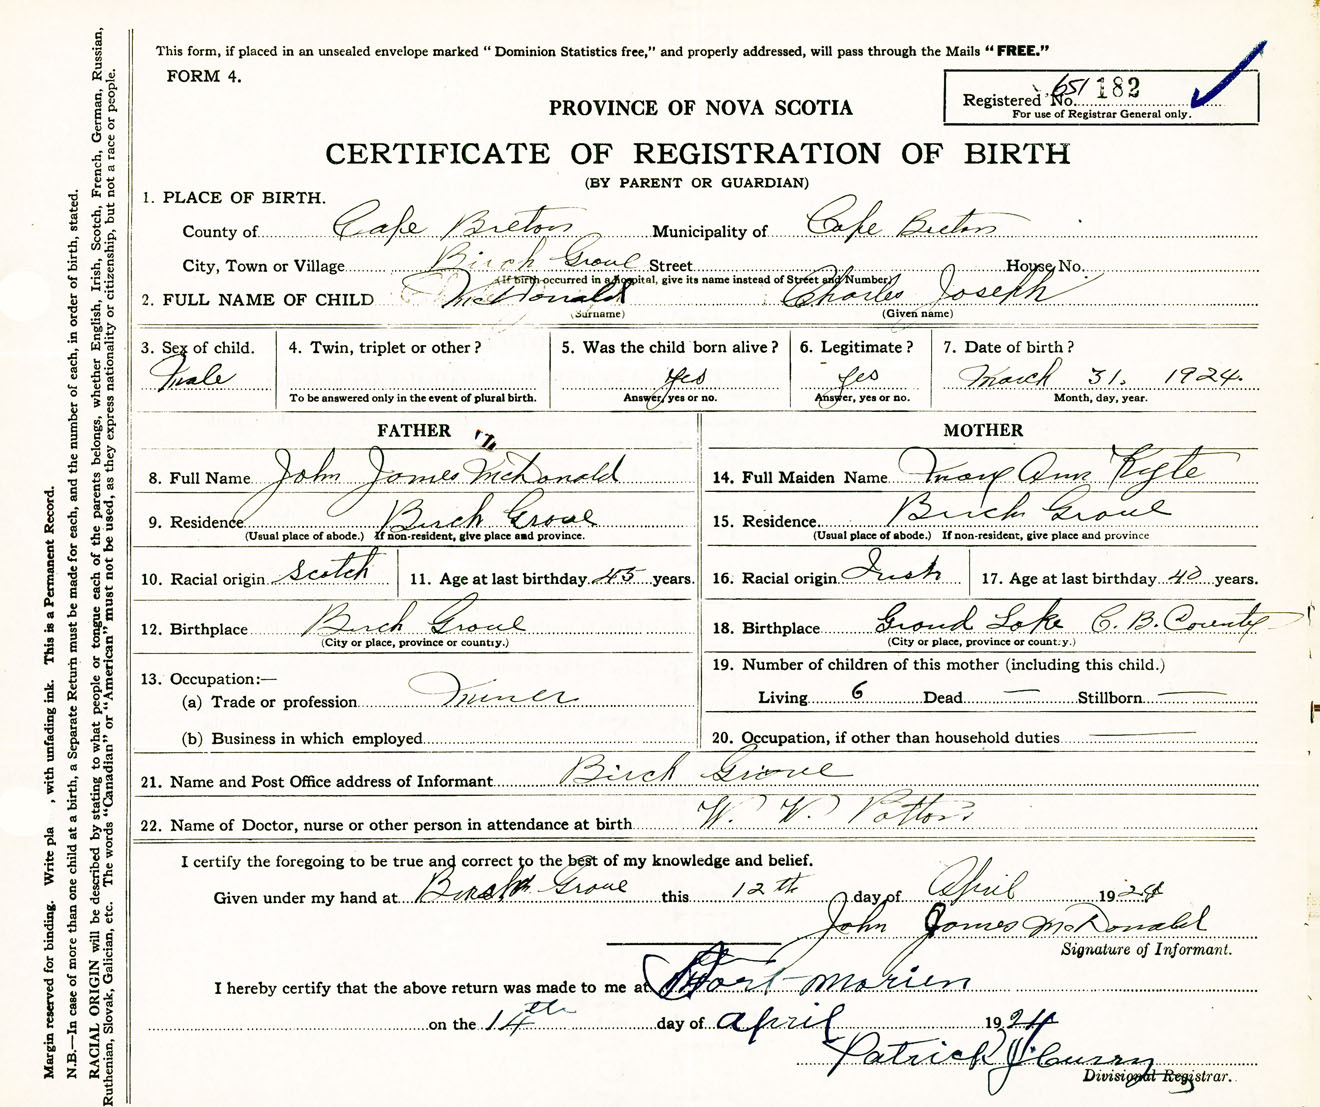 This form, if placed in an unsealed envelope marked “ Dominion Statistics free,” and properly addressed, will pass through the Mails “ FREE.”
FORM 4.
651 182
Registered No.
For use of Registrar General only.
PROVINCE OF NOVA SCOTIA
CERTIFICATE OF REGISTRATION OF BIRTH
(BY PARENT OR GUARDIAN)
1. PLACE OF BIRTH.
County of Cape Breton Municipality of Cape Breton
City, Town or Village Birch Grove Street House No.
(If birth occurred in a hospital, give its name instead of Street and Number)
2. FULL NAME OF CHILD McDonald Charles Joseph
(Surname) (Given name)
3. Sex of child. 4. Twin, triplet or other ? 5. Was the child born alive ? 6. Legitimate ? 7. Date of birth ?
Male yes yes March 31. 1924.
To be answered only in the event of plural birth. Answer, yes or no. Answer, yes or no. Month, day, year.
FATHER MOTHER
8. Full Name John James McDonald 14. Full Maiden Name Mary Ann Kyte
9. Residence Birch Grove 15. Residence Birch Grove
(Usual place of abode.) If non-resident, give place and province. (Usual place of abode.) If non-resident, give place and province
10. Racial origin Scotch 11. Age at last birthday 45 years. 16. Racial origin Irish 17. Age at last birthday 40 years.
12. Birthplace Birch Grove 18. Birthplace Grand Lake C. B. County
(City or place, province or country.) (City or place, province or country.)
19. Number of children of this mother (including this child.)
13. Occupation:—
(a) Trade or profession Miner Living 6 Dead — Stillborn —
(b) Business in which employed 20. Occupation, if other than household duties —
21. Name and Post Office address of Informant Birch Grove
22. Name of Doctor, nurse or other person in attendance at birth W. W. Patton
I certify the foregoing to be true and correct to the best of my knowledge and belief.
Given under my hand at Birch Grove this 12th day of April 1924
John James McDonald
Signature of Informant.
I hereby certify that the above return was made to me at Port Morien
on the 14th day of April 1924
Patrick J Curry
Divisional Registrar.
Margin reserved for binding. Write pla , with unfading ink. This is a Permanent Record.
N.B.—In case of more than one child at a birth, a Separate Return must be made for each, and the number of each, in order of birth, stated.
RACIAL ORIGIN will be described by stating to what people or tongue each of the parents belongs, whether English, Irish, Scotch, French, German, Russian,
Ruthenian, Slovak, Galician, etc. The words “Canadian” or “American” must not be used, as they express nationality or citizenship, but not a race or people.